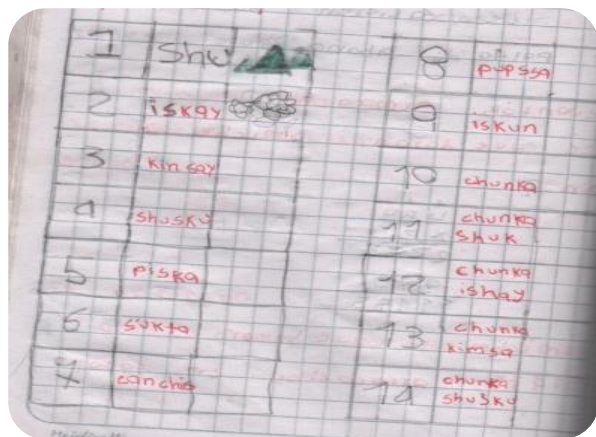 1 Shu
2 iskay
3 kin say
4 shusku
5 piska
6 sukta
7 canchis
8 pupssa
9 iskun
10 chunka
11 chunka
shuk
12 chunka
ishay
13 chunka
kimsa
14 chunka
shusku